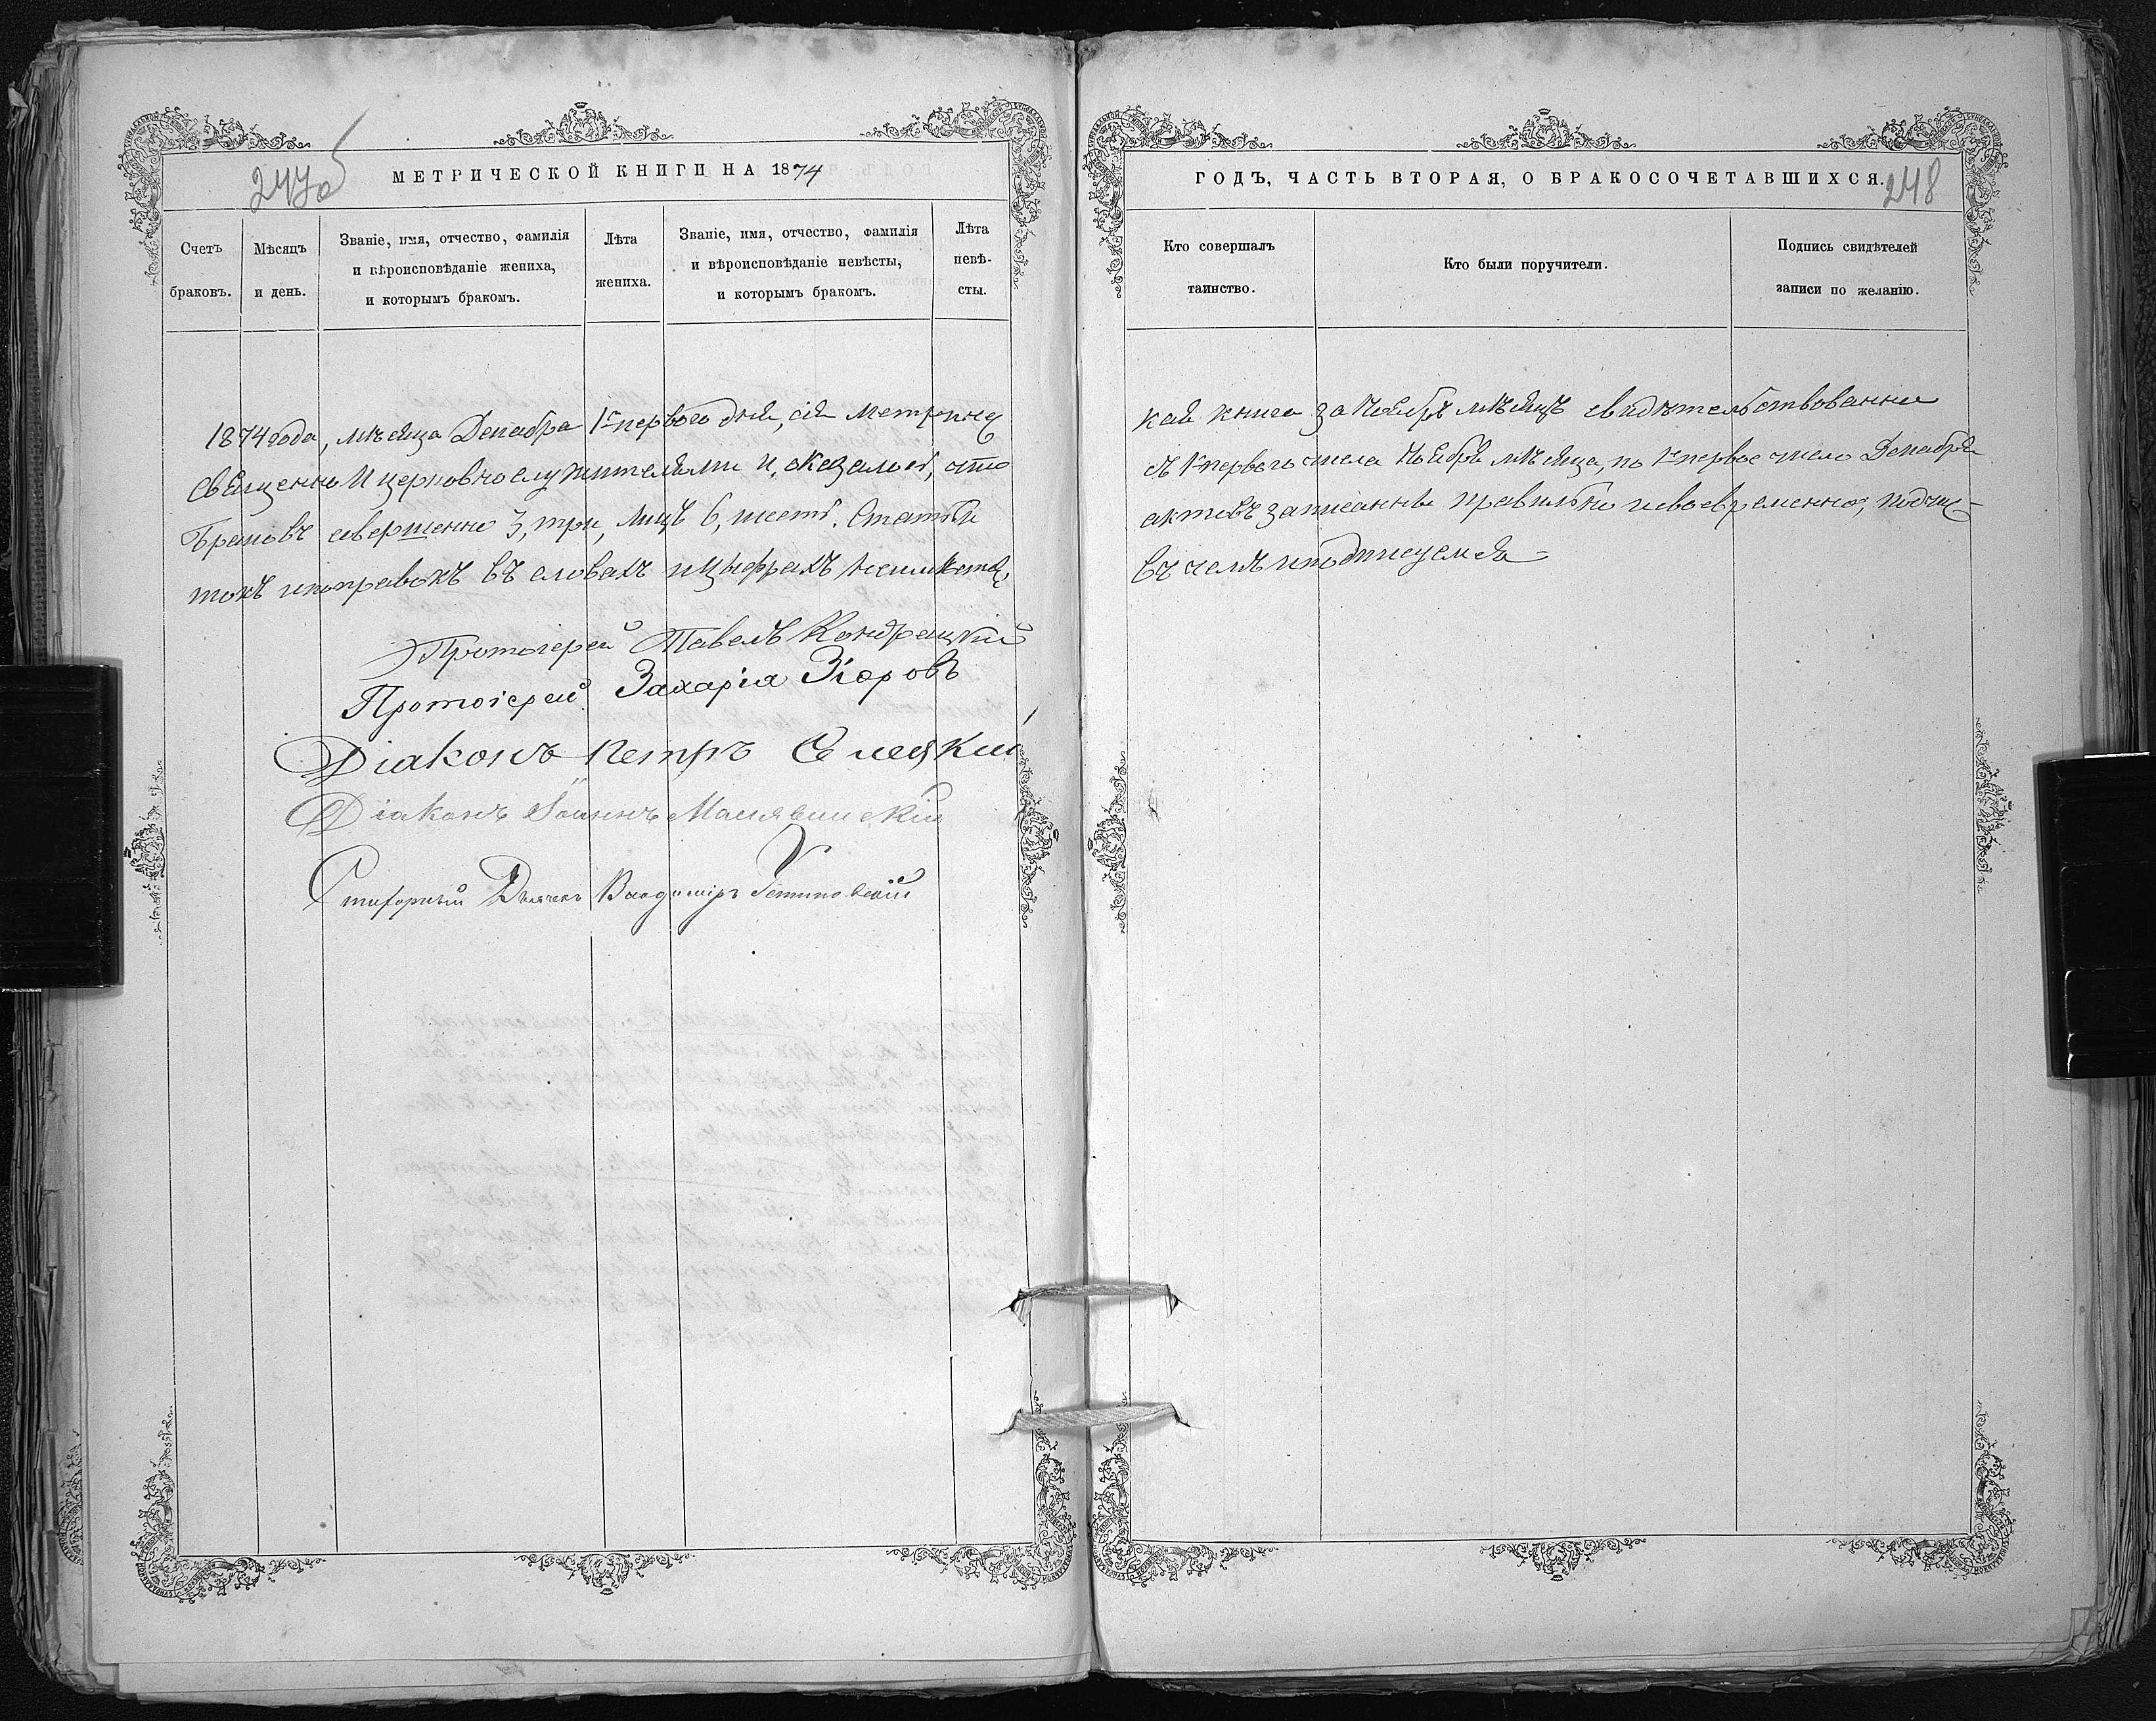 247об
МЕТРИЧЕСКОЙ КНИГИ НА 1874
Счетъ браковъ.
Мѣсяцъ и день.
Званіе, имя, отчество, фамилія
и вѣроисповѣданіе жениха,
и которымъ бракомъ.
Лѣта
жениха.
Званіе, имя, отчество, фамилія
и вѣроисповѣданіе невѣсты,
и которымъ бракомъ.
Лѣта
невѣ-
сты.
1874 года, мѣсяца Декабря 1 первого дня, сія Метриче
Священно и церковнослужителями и, оказалось, что
браковъ совершенно 3, три, лицъ 6, шесть. Статьи
токъ и поправокъ въ словахъ и цыфрахъ
Протоіерей Павелъ Кондрацкій
Протоіерей Захарія Эіоровъ
Діаконъ Петръ
Діаконъ Іоаннъ Малявинскій
Стихорный Дьячекъ Владимиръ
ГОДЪ, ЧАСТЬ ВТОРАЯ, О БРАКОСОЧЕТАВШИХСЯ.
248
Кто совершалъ
таинство.
Кто были поручители.
Подпись свидѣтелей
записи по желанію.
кая книга за Ноябрь мѣсяцъ свидѣтельствованна
съ 1 первого числа Ноября мѣсяца, по 1 первое число Декабря
актовъ записанны правильно и своевременно, подчис-
въ чемъ и подписуемся